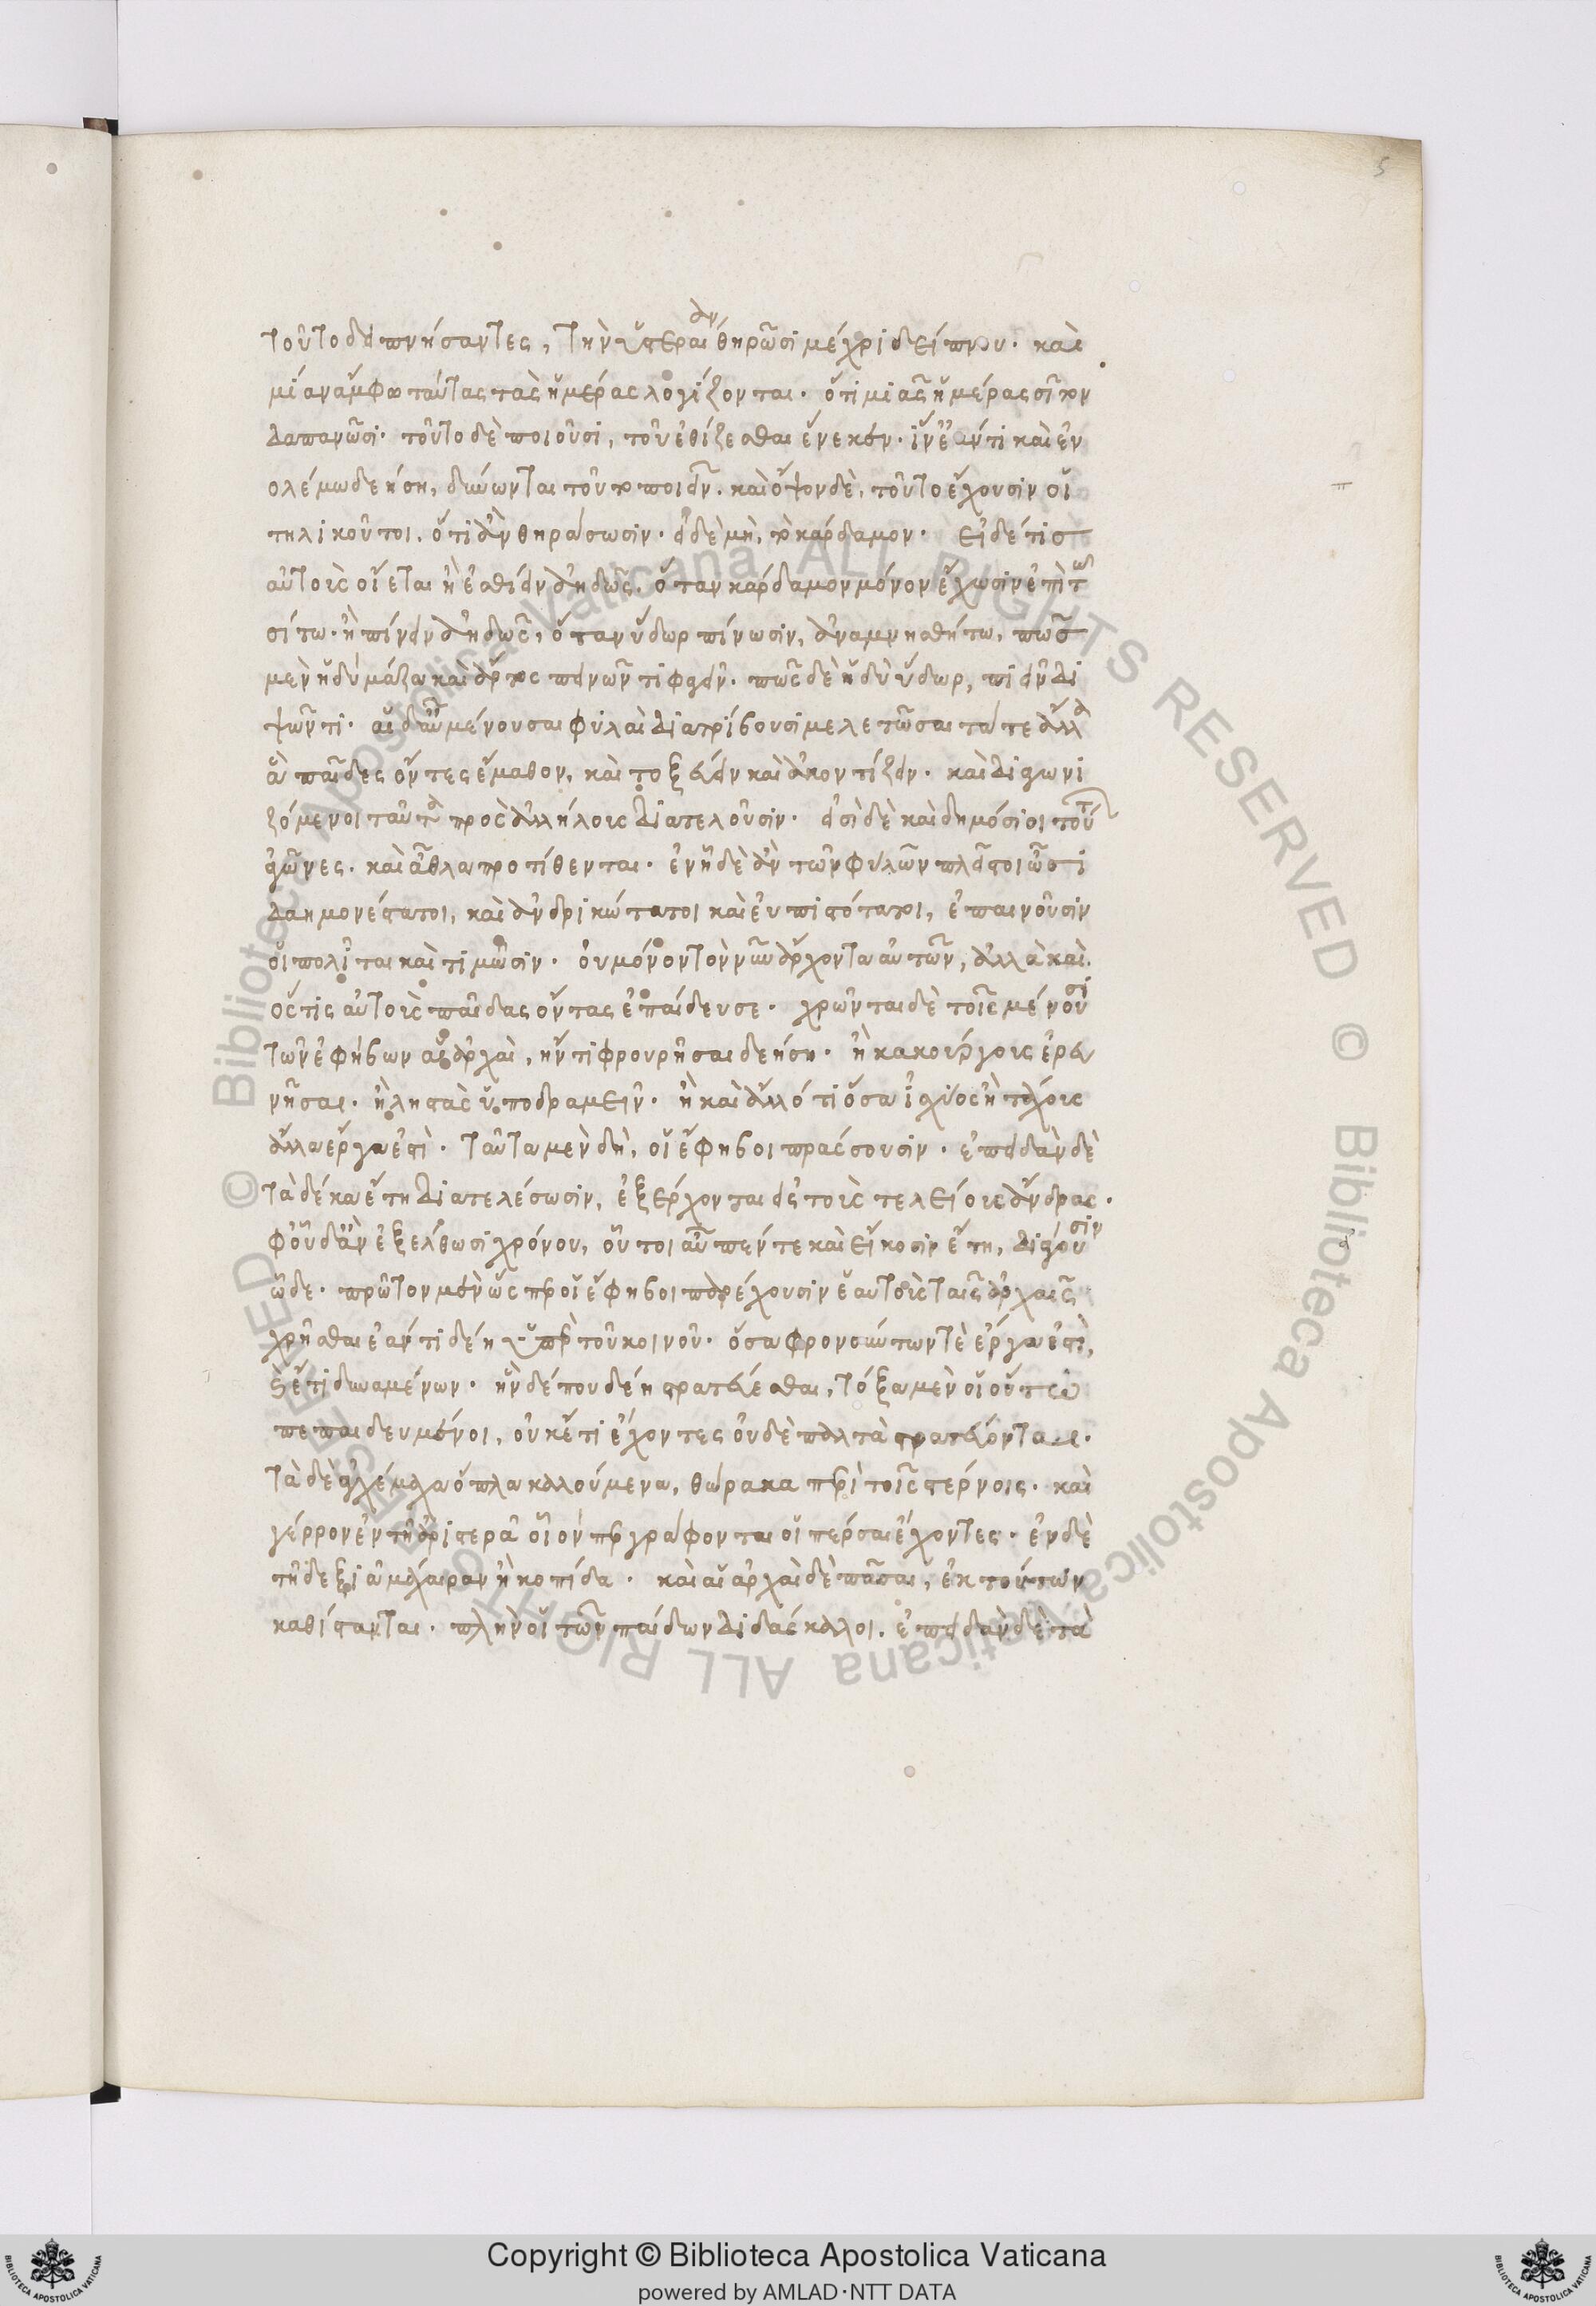 5
τοῦτο δειπνήσαντες, τὴν ὑστεραίαν θηρῶσι μέχρι δείπνου. καὶ
μίαν ἄμφω ταύτας τὰς ἡμέρας λογίζονται. ὅτι μιᾶς ἡμέρας σῖτον
δαπανῶσι. τοῦτο δὲ ποιοῦσι, τοῦ ἐθίζεσθαι ἕνεκεν. ἵν' ἐάν τι καὶ ἐν
ολέμω δεήση, δύνωνται τοῦτο ποιεῖν. καὶ ὄψον δὲ, τοῦτο ἔχουσιν οἱ
τηλικοῦτοι, ὅτι ἂν θηράσωσιν. εἰ δὲ μὴ, τὸ κάρδαμον. εἰ δέ τισ
αὐτοὺς οἴεται ἢ ἐσθίειν ἀηδῶς, ὅταν κάρδαμον μόνον ἔχωσιν ἐπὶ τῶ
σίτω. ἢ πίνειν ἀηδῶς, ὅταν ὕδωρ πίνωσιν, ἀναμνησθήτω, πῶσ
μὲν ἡδὺ μάζα καὶ ἄρτος πεινῶντι φαγεῖν. πῶς δὲ ἡδὺ ὕδωρ, πιεῖν δι
ψῶντι. αἱ δ' αὖ μένουσαι φυλαὶ διατρίβουσι μελετῶσαι τά τε ἄλλα
ἃ παῖδες ὄντες ἔμαθον, καὶ τοξεύειν καὶ ἀκοντίζειν. καὶ διαγωνι
ζόμενοι ταῦτα πρὸς ἀλλήλους διατελοῦσιν. εἰσὶ δὲ καὶ δημόσιοι τούτ
ἀγῶνες. καὶ ἆθλα προτίθενται. ἐν ἧ δ' ἂν τῶν φυλῶν πλεῖστοι ὦσι
δαημονέστατοι, καὶ ἀνδρικώτατοι καὶ εὐπιστότατοι, ἐπαινοῦσιν
οἱ πολῖται καὶ τιμῶσιν. οὐ μόνον τὸν νῦν ἄρχοντα αὐτῶν, ἀλλὰ καὶ
ὅςτις αὐτοὺς παῖδας ὄντας ἐπαίδευσε. χρῶνται δὲ τοῖς μένουσι
τῶν ἐφήβων αἱ ἀρχαὶ, ἤν τι φρουρῆσαι δεήση. ἢ κακούργους ἐρευ
νῆσαι. ἢ ληστὰς ὑποδραμεῖν. ἢ καὶ ἄλλό τι ὅσα ἰσχύος ἢ τάχους
ἄλλα ἔργα ἐστὶ. ταῦτα μὲν δὴ, οἱ ἔφηβοι πράσσουσιν. ἐπειδὰν δὲ
τὰ δέκα ἔτη διατελέσωσιν, ἐξέρχονται εἰς τοὺς τελείους ἄνδρας.
ἀφ' οὗ δ' ἂν ἐξέλθωσι χρόνου, οὗτοι αὖ πέντε καὶ εἴκοσιν ἔτη, διάγουσιν
ὧδε. πρῶτον μὲν ὥςπερ οἱ ἔφηβοι παρέχουσιν ἑαυτοὺς ταῖς ἀρχαῖς
χρῆσθαι ἐάν τι δέη ὑπὲρ τοῦ κοινοῦ. ὅσα φρονούντων τὲ ἔργα ἐστὶ,
καὶ ἔτι δυναμένων. ἢν δέ που δέη στρατεύεσθαι, τόξα μὲν οἱ οὕτω
πεπαιδευμένοι, οὐκέτι ἔχοντες οὐδὲ παλτὰ στρατεύονται.
τὰ δὲ ἀγχέμαχα ὅπλα καλούμενα, θώρακα περὶ τοῖς στέρνοις. καὶ
γέρρον ἐν τῆ ἀριστερᾶ οἷον περ γράφονται οἱ πέρσαι ἔχοντες. ἐν δὲ
τῆ δεξιᾶ μάχαιραν ἢ κοπίδα. καὶ αἱ ἀρχαὶ δὲ πᾶσαι, ἐκ τούτων
καθίστανται. πλὴν οἱ τῶν παίδων διδάσκαλοι. ἐπειδὰν δὲ τὰ
Copyright © Biblioteca Apostolica Vaticana
powered by AMLAD·NTT DATA
© Biblioteca Apostolica Vaticana ALL RIGHTS RESERVED